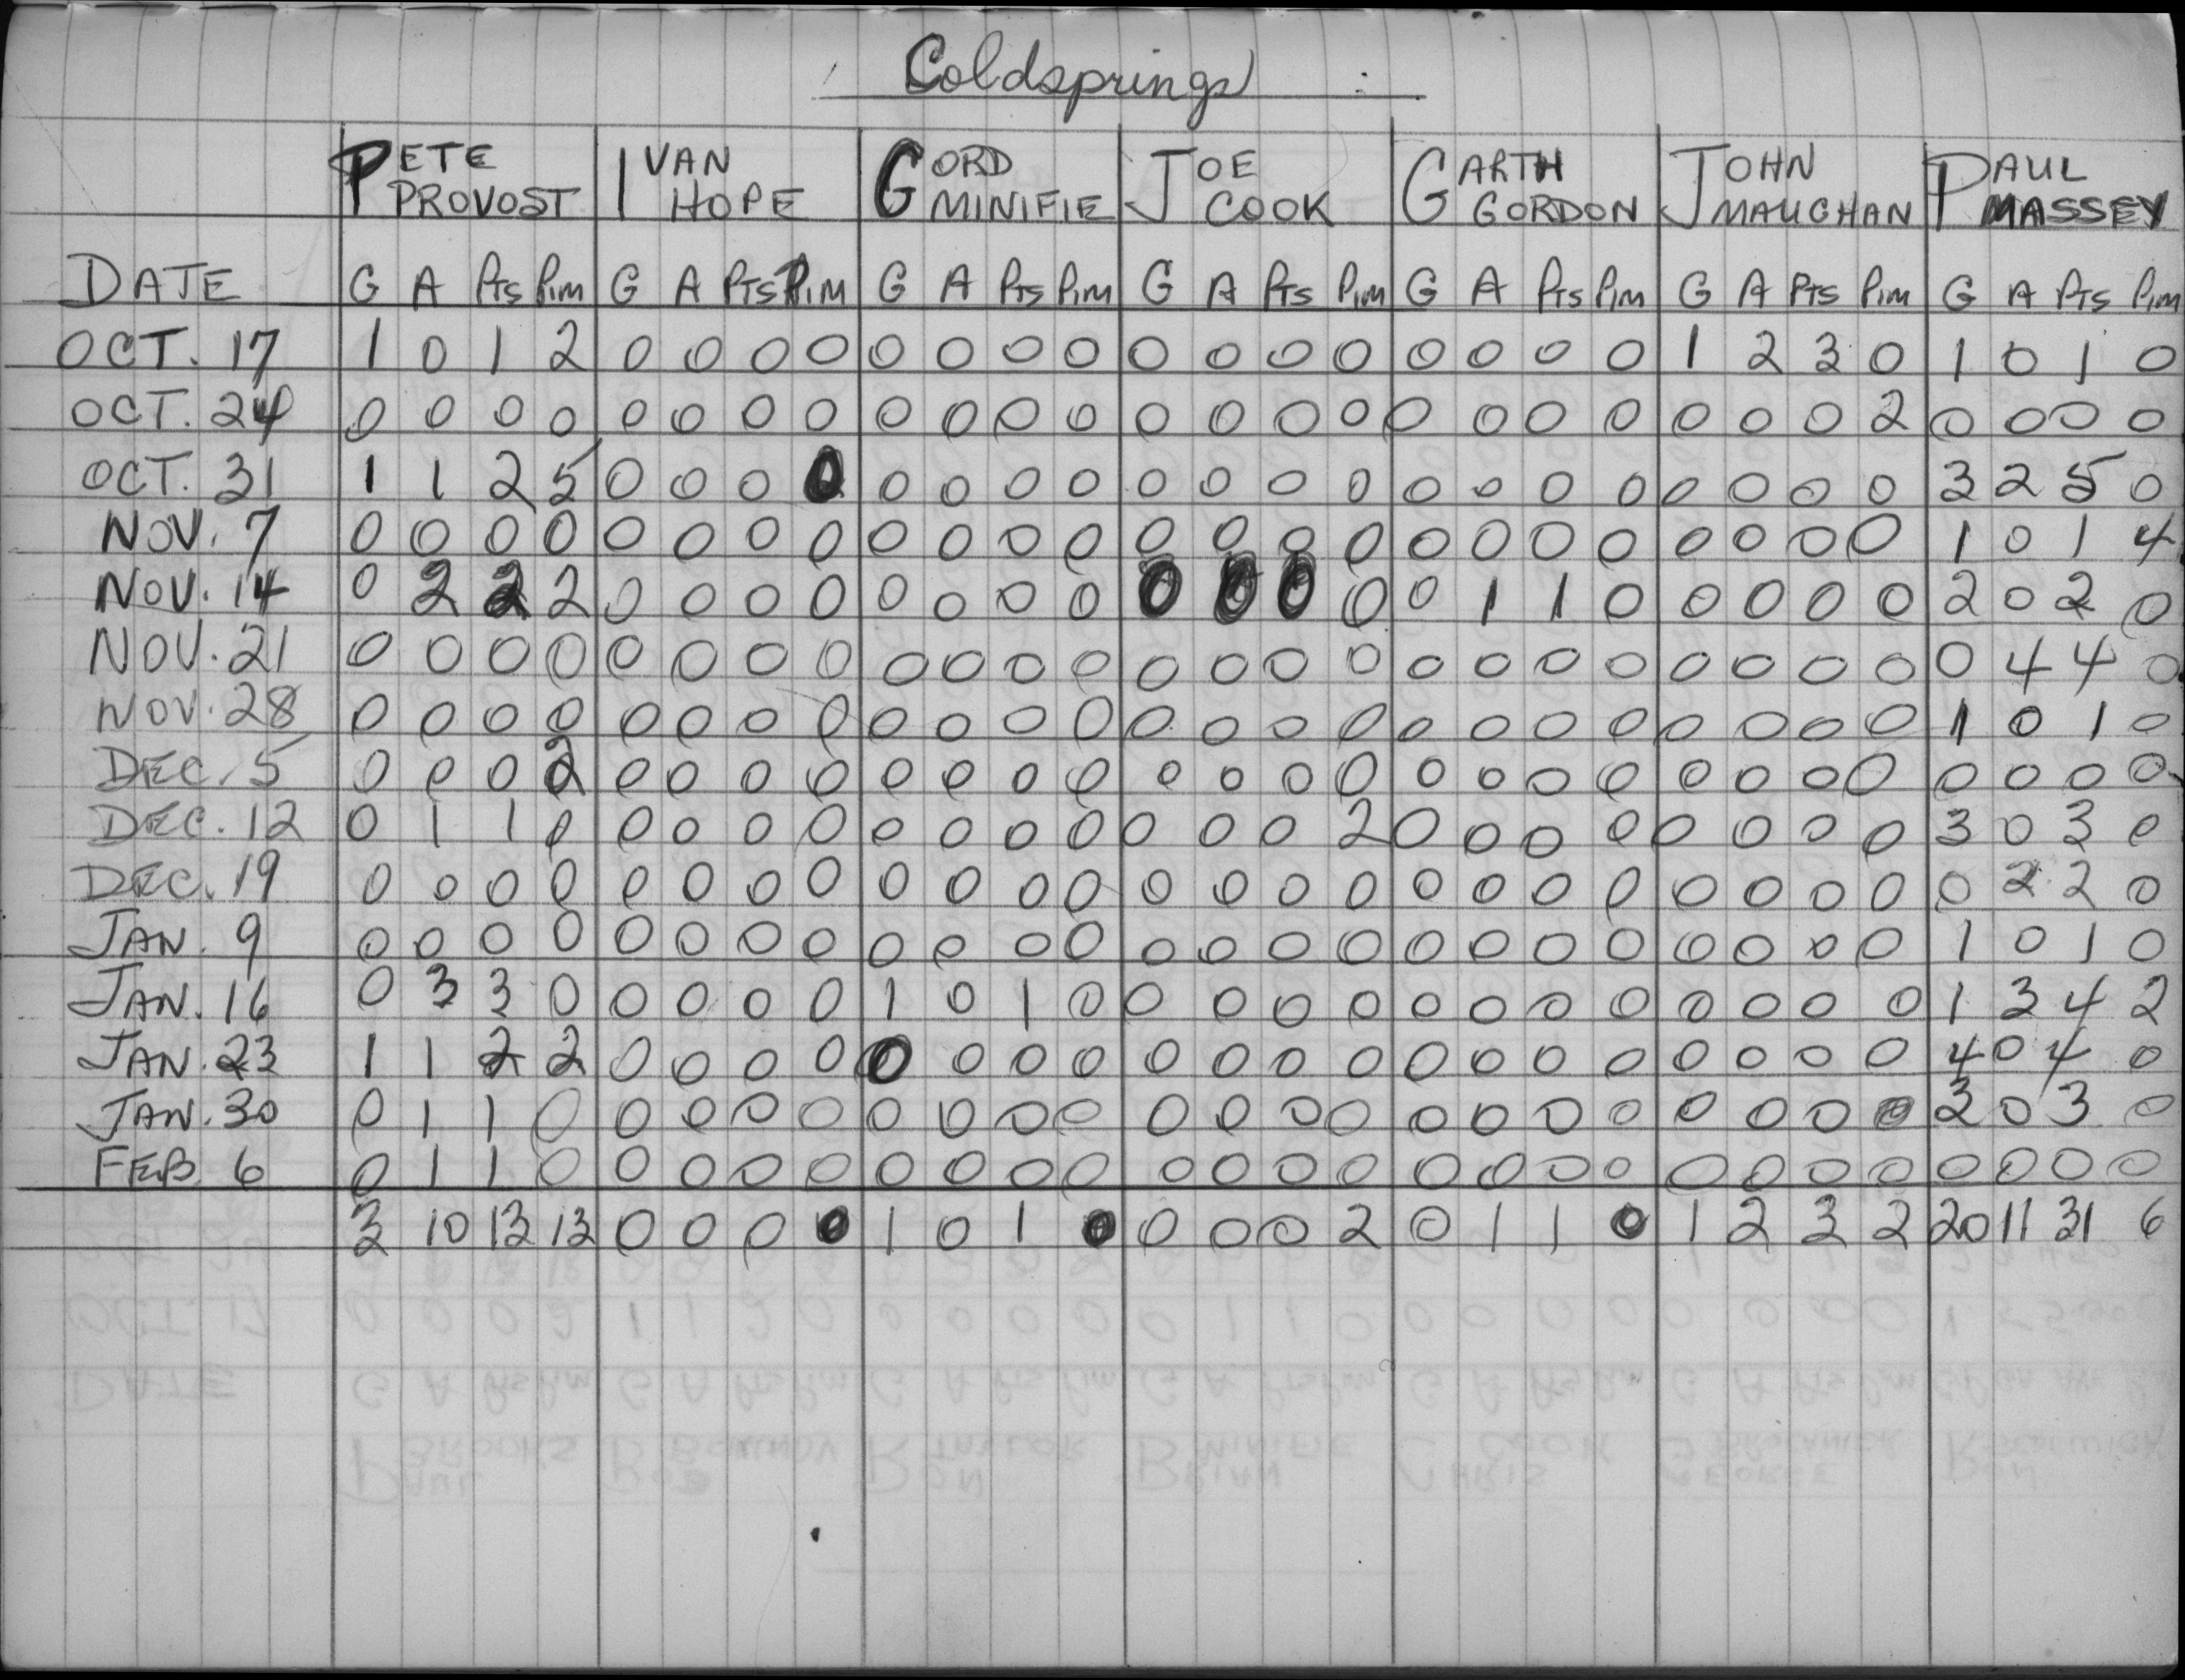 Coldsprings
PETE PROVOST IVAN HOPE GORD MINIFIE JOE COOK GARTH GORDON JOHN MAUGHAN PAUL MASSEY
DATE G A Pts Pim G A PTS PIM G A PTS Pim G A Pts Pim G A PTS Pim G A PTS Pim G A PTS Pim
OCT. 17 1 0 1 2 0 0 0 0 0 0 0 0 0 0 0 0 0 0 0 0 1 2 3 0 1 0 1 0
OCT. 24 0 0 0 0 0 0 0 0 0 0 0 0 0 0 0 0 0 0 0 0 0 0 0 2 0 0 0 0
OCT. 31 1 1 2 5 0 0 0 0 0 0 0 0 0 0 0 0 0 0 0 0 0 0 0 0 3 2 5 0
NOV. 7 0 0 0 0 0 0 0 0 0 0 0 0 0 0 0 0 0 0 0 0 0 0 0 0 1 0 1 4
NOV. 14 0 2 2 2 0 0 0 0 0 0 0 0 0 0 0 0 0 1 1 0 0 0 0 0 2 0 2 0
NOV. 21 0 0 0 0 0 0 0 0 0 0 0 0 0 0 0 0 0 0 0 0 0 0 0 0 0 4 4 0
NOV. 28 0 0 0 0 0 0 0 0 0 0 0 0 0 0 0 0 0 0 0 0 0 0 0 0 1 0 1 0
DEC. 5 0 0 0 2 0 0 0 0 0 0 0 0 0 0 0 0 0 0 0 0 0 0 0 0 0 0 0 0
DEC. 12 0 1 1 0 0 0 0 0 0 0 0 0 0 0 0 2 0 0 0 0 0 0 0 0 3 0 3 0
DEC. 19 0 0 0 0 0 0 0 0 0 0 0 0 0 0 0 0 0 0 0 0 0 0 0 0 0 2 2 0
JAN. 9 0 0 0 0 0 0 0 0 0 0 0 0 0 0 0 0 0 0 0 0 0 0 0 0 1 0 1 0
JAN. 16 0 3 3 0 0 0 0 0 1 0 1 0 0 0 0 0 0 0 0 0 0 0 0 0 1 3 4 2
JAN. 23 1 1 2 2 0 0 0 0 0 0 0 0 0 0 0 0 0 0 0 0 0 0 0 0 4 0 4 0
JAN. 30 0 1 1 0 0 0 0 0 0 0 0 0 0 0 0 0 0 0 0 0 0 0 0 0 3 0 3 0
FEB. 6 0 1 1 0 0 0 0 0 0 0 0 0 0 0 0 0 0 0 0 0 0 0 0 0 0 0 0 0
3 10 13 13 0 0 0 0 1 0 1 0 0 0 0 2 0 1 1 0 1 2 3 2 20 11 31 6